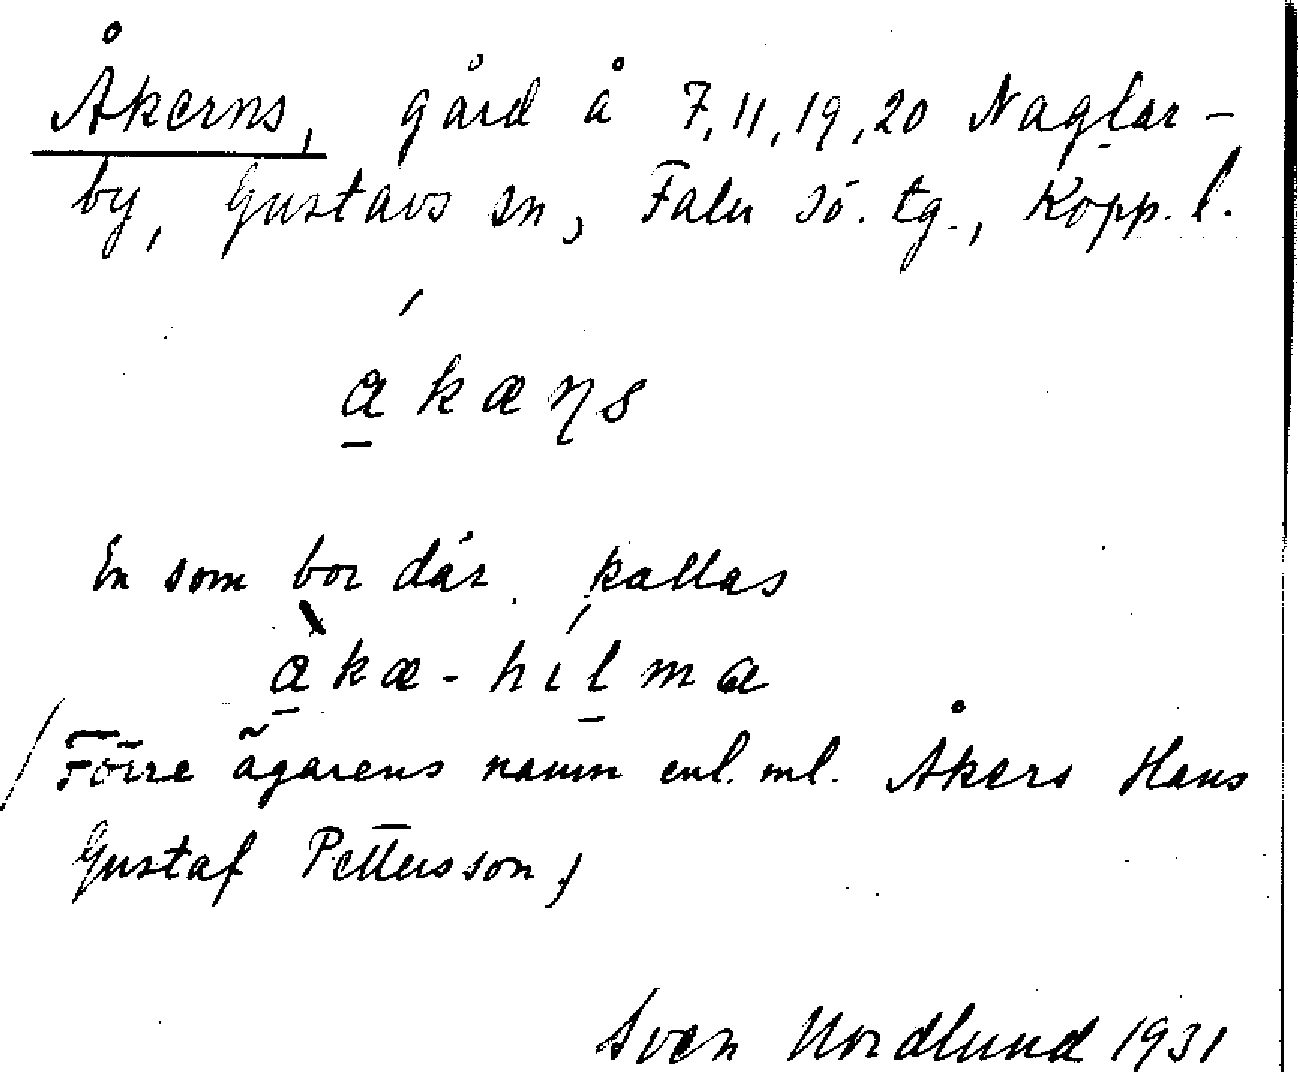 Åkerns, gård å 7, 11, 19, 20 Naglar-
by, Gustavs sn, Falu sö. tg., Kopp. l.
ákæņs
En som bor där kallas
àkæ-hílma
/Förre ägarens namn enl. ml. Åkers Hans
Gustaf Pettersson/
Sven Nordlund 1931